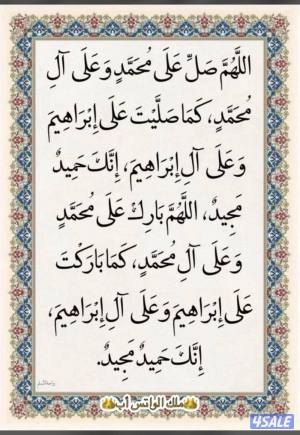 اللَّهُمَّ صَلِّ عَلَى مُحَمَّدٍ وَعَلَى آلِ
مُحَمَّدٍ، كَمَا صَلَّيْتَ عَلَى إِبْرَاهِيمَ
وَعَلَى آلِ إِبْرَاهِيمَ، إِنَّكَ حَمِيدٌ
مَجِيدٌ، اللَّهُمَّ بَارِكْ عَلَى مُحَمَّدٍ
وَعَلَى آلِ مُحَمَّدٍ، كَمَا بَارَكْتَ
عَلَى إِبْرَاهِيمَ وَعَلَى آلِ إِبْرَاهِيمَ،
إِنَّكَ حَمِيدٌ مَجِيدٌ.
ملك الواتس آب
4SALE